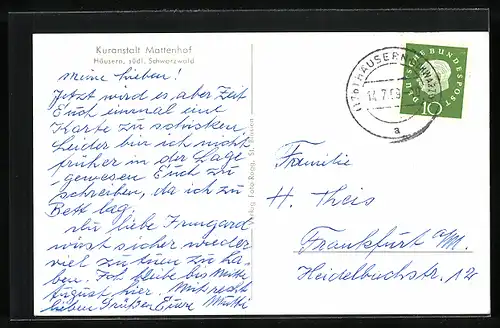 Kuranstalt Mattenhof
Häusern, südl. Schwarzwald
Meine Lieben!
Jetzt wird es aber Zeit
Euch einmal eine
Karte zu schicken.
Leider bin ich nicht
früher in der Lage
gewesen Euch zu
schreiben, da ich zu
Bett lag.
Du liebe Irmgard
wirst sicher wieder
viel zu tun zu ha-
ben. Ich bleibe bis Mitte
August hier. Mit recht
lieben Grüßen Eure Mutti
Verlag: Foto-Rogg, St. Blasien
(17b) HÄUSERN
14.7.59
a
DEUTSCHE BUNDESPOST
10
Familie
H. Theis
Frankfurt a/M.
Heidelbachstr. 12